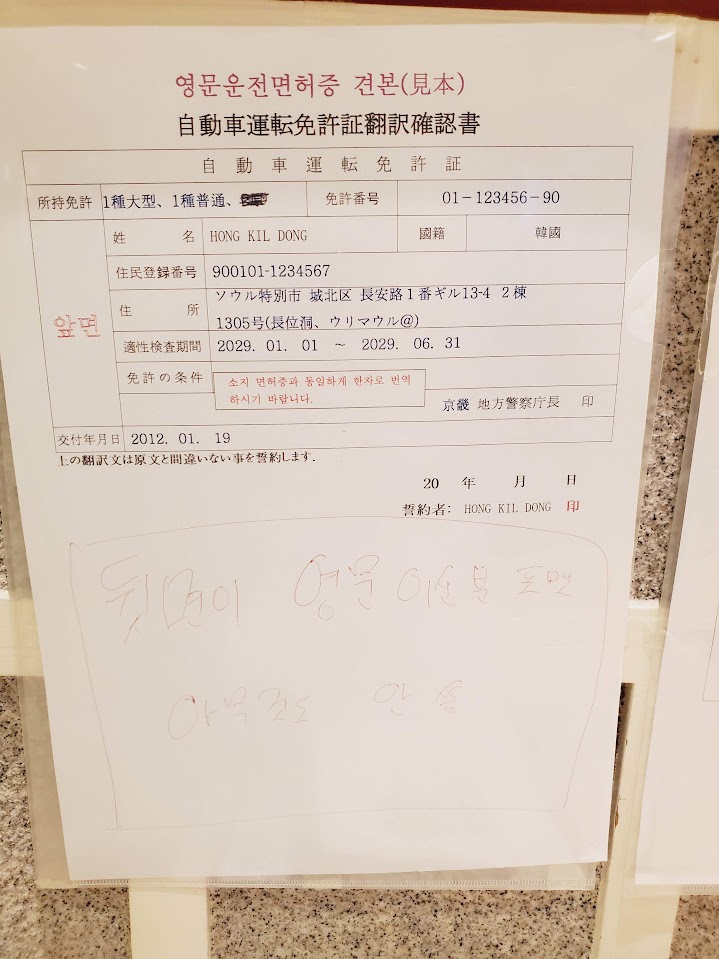 영문운전면허증 견본(見本)
自動車運転免許証翻訳確認書
自動車運転免許証
所持免許 1種大型、1種普通、 免許番号 01-123456-90
앞면
姓 名 HONG KIL DONG 國籍 韓國
住民登録番号 900101-1234567
住 所 ソウル特別市 城北区 長安路1番ギル13-4 2棟
1305号(長位洞、ウリマウル@)
適性検査期間 2029. 01. 01 ~ 2029. 06. 31
免許の条件 소지 면허증과 동일하게 한자로 번역
하시기 바랍니다.
京畿 地方警察庁長 印
交付年月日 2012. 01. 19
上の翻訳文は原文と間違いない事を誓約します.
20 年 月 日
誓約者: HONG KIL DONG 印
뒷면이 영문이신 분
아무것도 안 씀